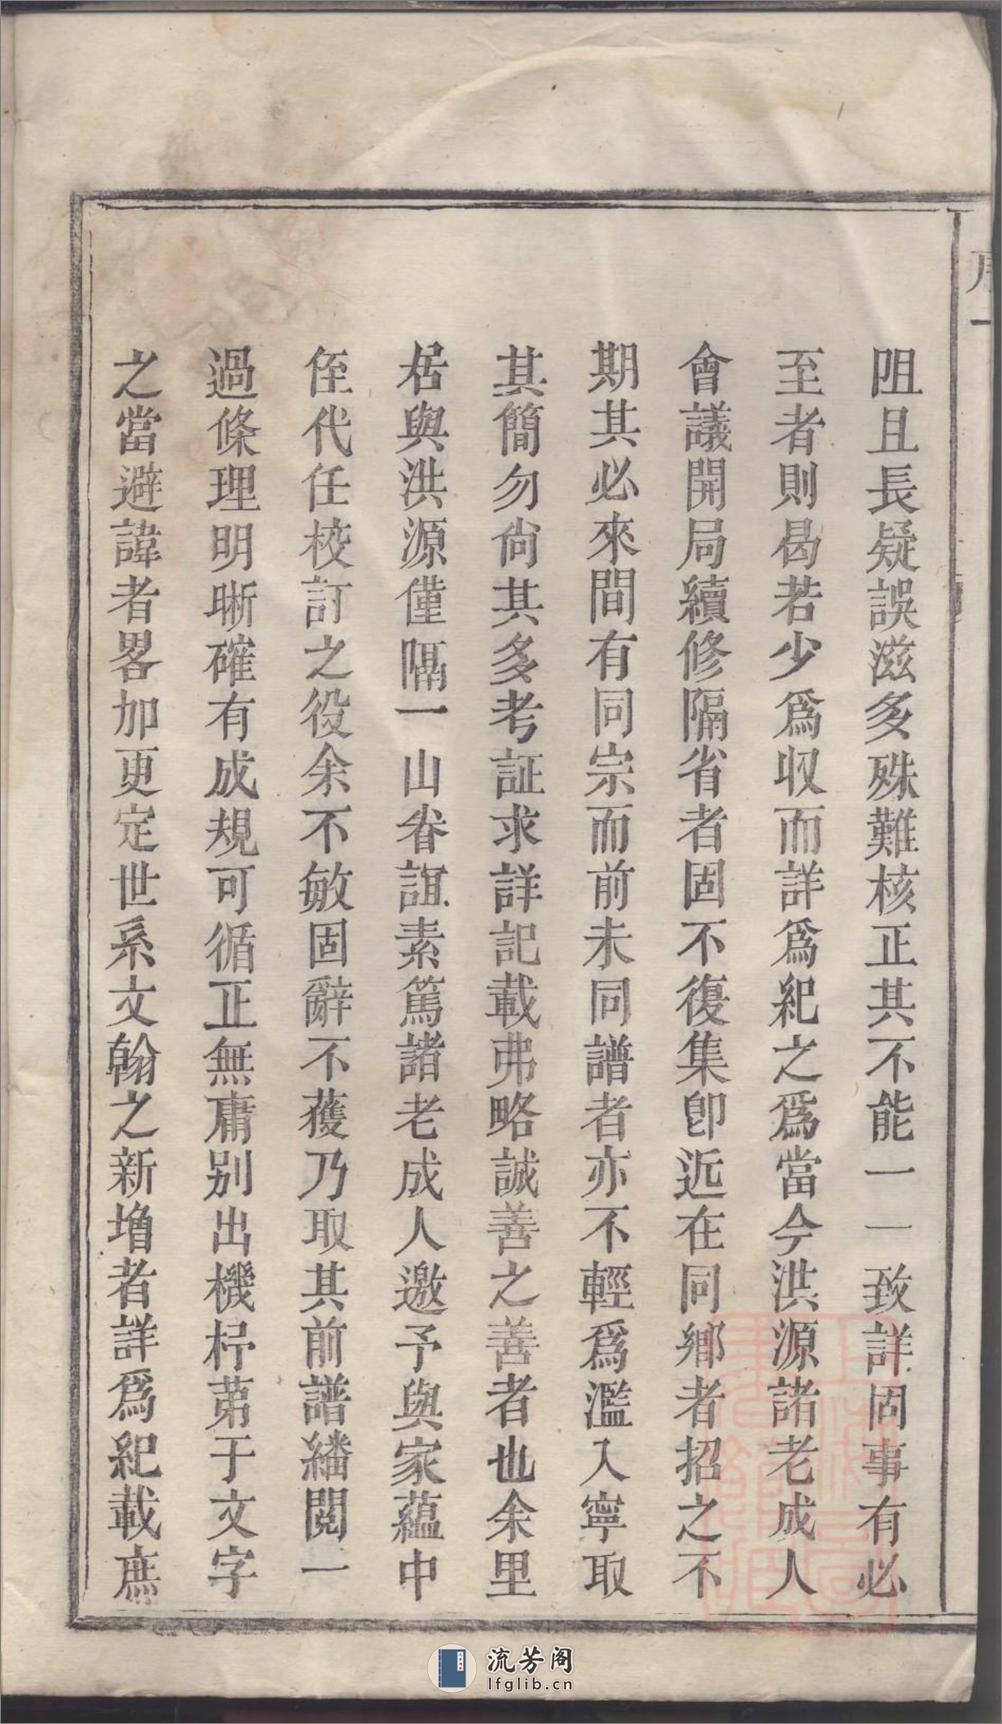 序
阻且長疑誤滋多殊難核正其不能一一致詳固事有必
至者則曷若少爲収而詳爲紀之爲當今洪源諸老成人
會議開局續修隔省者固不復集卽近在同鄉者招之不
期其必來間有同宗而前未同譜者亦不輕爲濫入寧取
其簡勿尙其多考証求詳記載弗略誠善之善者也余里
居與洪源僅隔一山眷誼素篤諸老成人邀予與家蘊中
侄代任校訂之役余不敏固辭不獲乃取其前譜繙閱一
過條理明晰確有成規可循正無庸别出機杼苐于文字
之當避諱者畧加更定世系文翰之新增者詳爲紀載庶
流芳阁
lfglib.cn